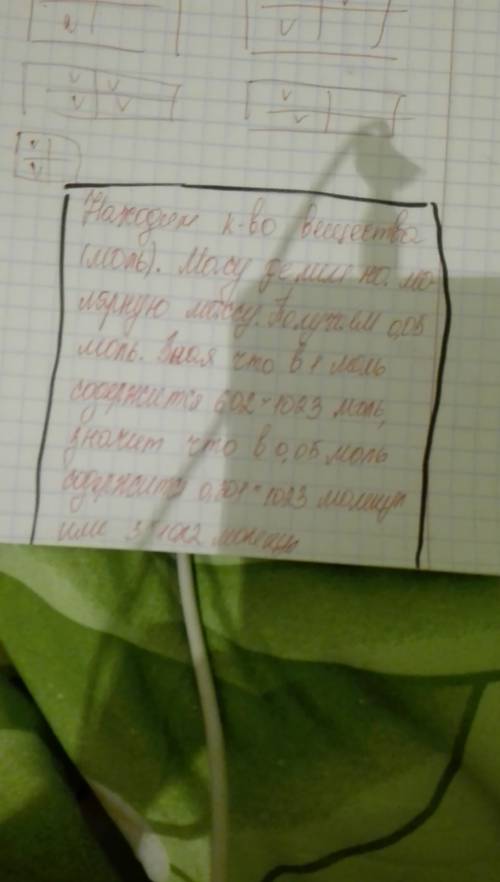 Находим к-во вещества
(моль). Масу делим на мо-
лярную массу. Получаем 0,05
моль. Зная что в 1 моль
содержится 602*1023 моль,
значит что в 0,05 моль
содержится 0,301*1023 молекул
или 3*1022 молекул